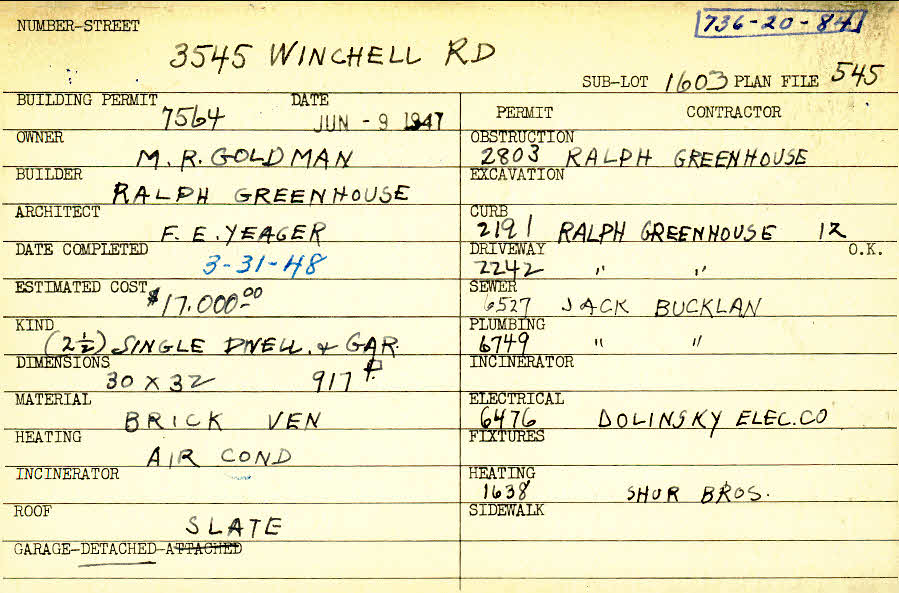 736-20-84
NUMBER-STREET
3545 WINCHELL RD
SUB-LOT 1603 PLAN FILE 545
BUILDING PERMIT DATE
7564 JUN - 9 1947
OWNER
M. R. GOLDMAN
BUILDER
RALPH GREENHOUSE
ARCHITECT
F. E. YEAGER
DATE COMPLETED
3-31-48
ESTIMATED COST
$17.000.00
KIND
(2½) SINGLE DWELL. & GAR.
DIMENSIONS
30 X 32 917
MATERIAL
BRICK VEN
HEATING
AIR COND
INCINERATOR
ROOF
SLATE
GARAGE-DETACHED-ATTACHED
PERMIT CONTRACTOR
OBSTRUCTION
2803 RALPH GREENHOUSE
EXCAVATION
CURB
2191 RALPH GREENHOUSE 12
DRIVEWAY O.K.
2242 " "
SEWER
6527 JACK BUCKLAN
PLUMBING
6749 " "
INCINERATOR
ELECTRICAL
6476 DOLINSKY ELEC. CO
FIXTURES
HEATING
1638 SHUR BROS.
SIDEWALK